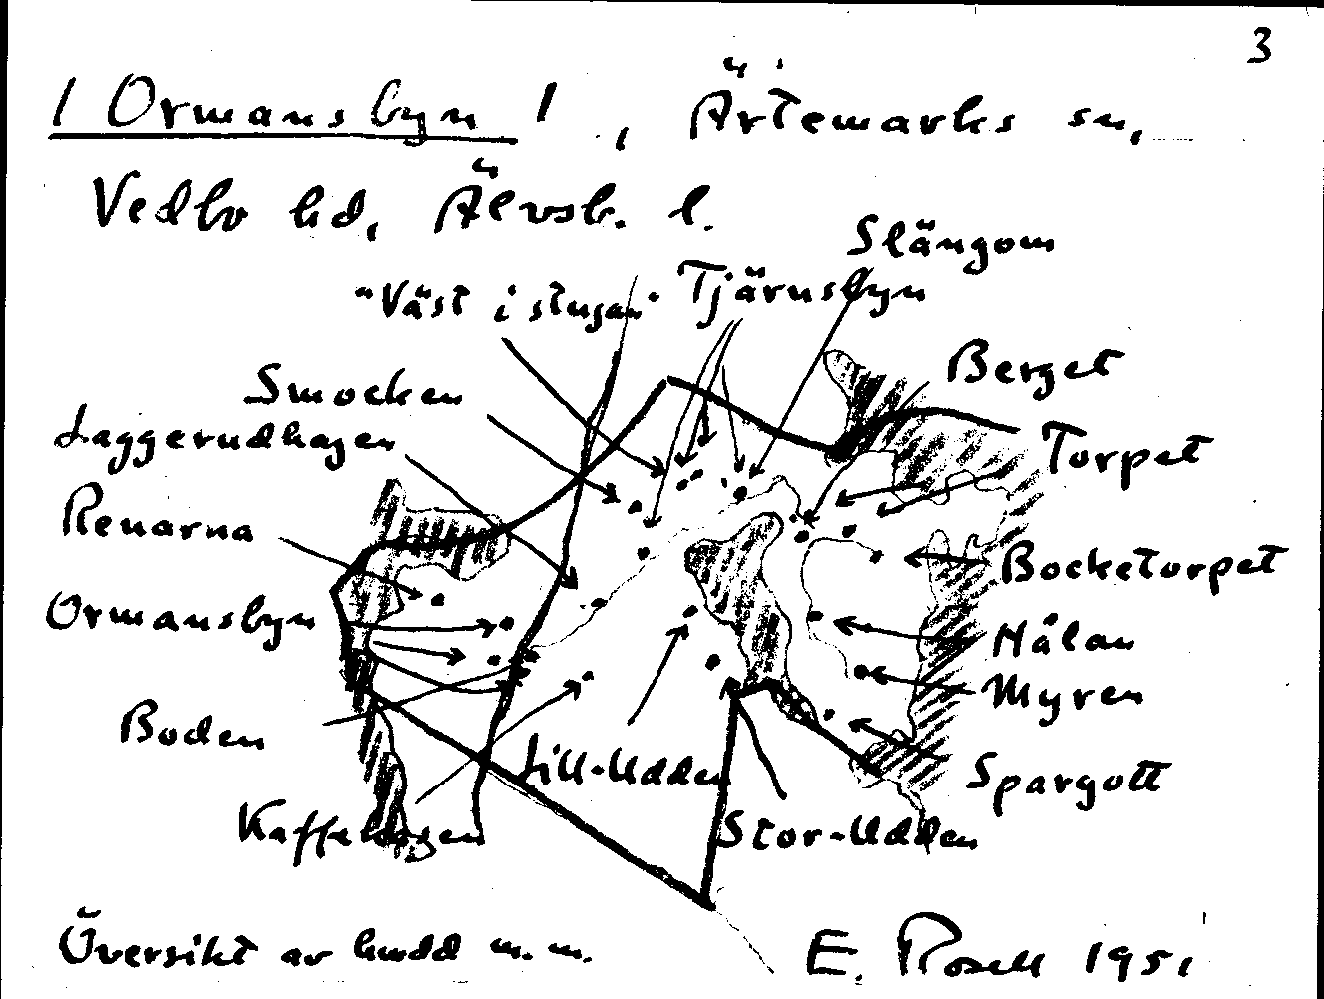 3
/ Ormansbyn /, Ärtemarks sn,
Vedbo hd, Älvsb. l.
Slängom
"Väst i stugan" Tjärnsbyn
Berget
Smocken
Laggerudhagen
Torpet
Renarna
Bocketorpet
Ormansbyn
Nålan
Myren
Boden
Lill-Udden
Spargott
Stor-Udden
Översikt av m. m.
E. Rosell 1951